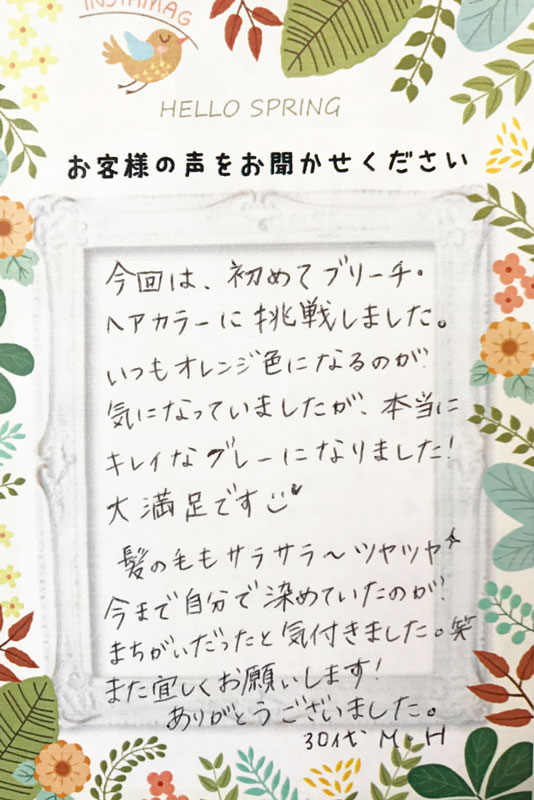 INSTAMAG
HELLO SPRING
お客様の声をお聞かせください
今回は、初めてブリーチ・
ヘアカラーに挑戦しました。
いつもオレンジ色になるのが
気になっていましたが、本当に
キレイなグレーになりました!
大満足です
髪の毛もサラサラ〜ツヤツヤ☆
今まで自分で染めていたのが
まちがいだったと気付きました。笑
また宜しくお願いします!
ありがとうございました。
30代 M・H